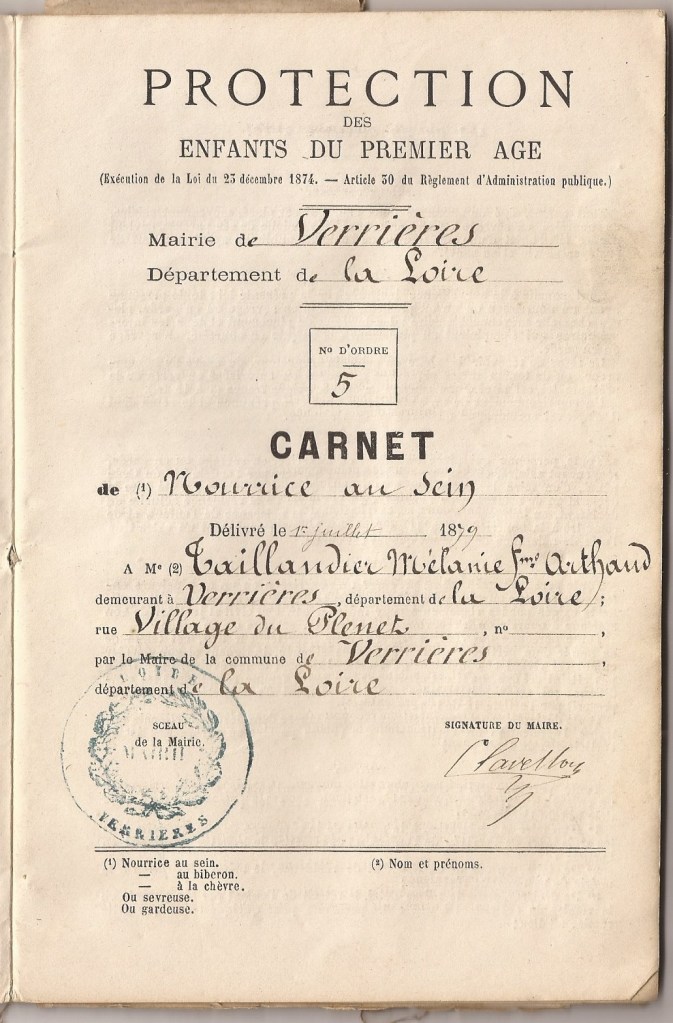 PROTECTION
DES
ENFANTS DU PREMIER AGE
(Exécution de la Loi du 23 décembre 1874. — Article 30 du Règlement d'Administration publique.)
Mairie de Verrières
Département de la Loire
No D'ORDRE
5
CARNET
de (1) Nourrice au Sein
Délivré le 1er juillet 1879
A Me (2) Taillandier Mélanie fme Arthaud
demeurant à Verrières, département de la Loire;
rue Village du Plenet, no ,
par le Maire de la commune de Verrières,
département de la Loire
LOIRE
MAIRIE
VERRIERES
SCEAU
de la Mairie.
SIGNATURE DU MAIRE.
(1) Nourrice au sein.
— au biberon.
— à la chèvre.
Ou sevreuse.
Ou gardeuse.
(2) Nom et prénoms.